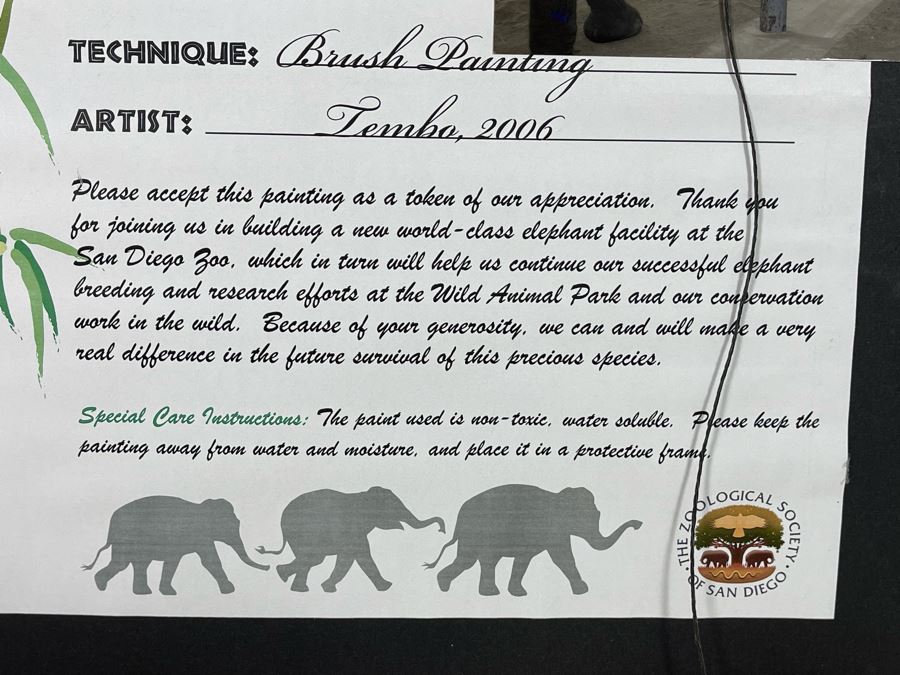 TECHNIQUE: Brush Painting
ARTIST: Tembo, 2006
Please accept this painting as a token of our appreciation. Thank you
for joining us in building a new world-class elephant facility at the
San Diego Zoo, which in turn will help us continue our successful elephant
breeding and research efforts at the Wild Animal Park and our conservation
work in the wild. Because of your generosity, we can and will make a very
real difference in the future survival of this precious species.
Special Care Instructions: The paint used is non-toxic, water soluble. Please keep the
painting away from water and moisture, and place it in a protective frame.
· THE ZOOLOGICAL SOCIETY ·
OF SAN DIEGO